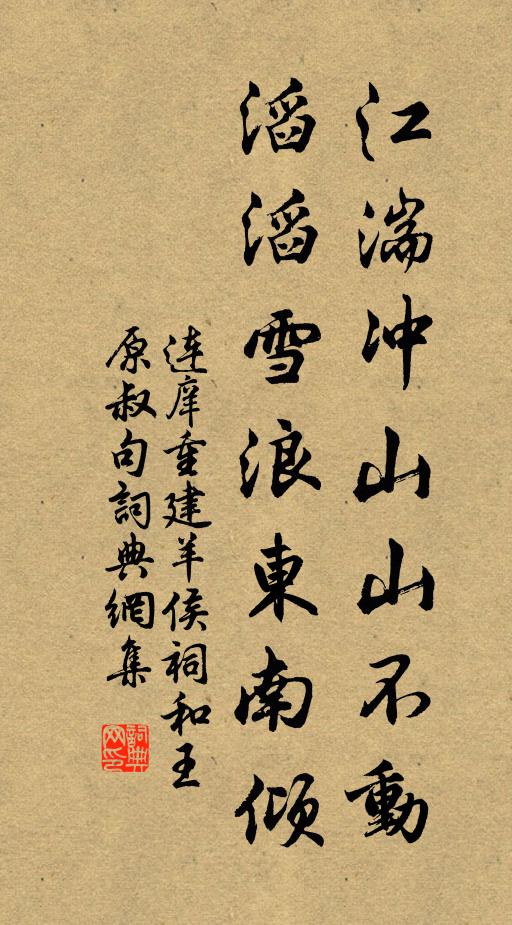 江湍冲山山不動
滔滔雪浪東南傾
连庠重建羊侯祠和王
原叔句詞典網集
詞典网印